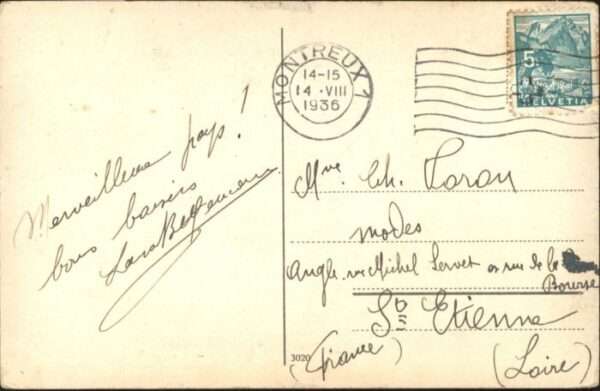 MONTREUX 1
14-15
14.VIII
1936
5
HELVETIA
Merveilleux pays !
bons baisers
Mme. Ch. Laran
modes
Angle rue Michel Servet et rue de la
Bourse
St Etienne
(France)
(Loire)
3020